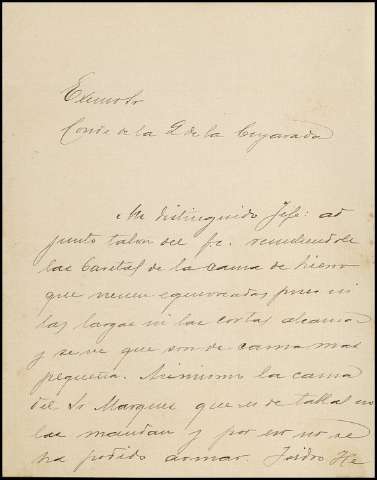 Excmo Sr
Conde de la E de la Enjarada
Mi distinguido Jefe: ad
junto talon del f.c. remitiendole
las Cantas de la cama de hierro
que vienen equivocadas pues ni
las largas ni las cortas alcanzan
y se ve que son de cama mas
pequeña. Asimismo la cama
del Sr Marques que es de tablas no
las mandan y por eso no se
ha podido armar. Isidro He